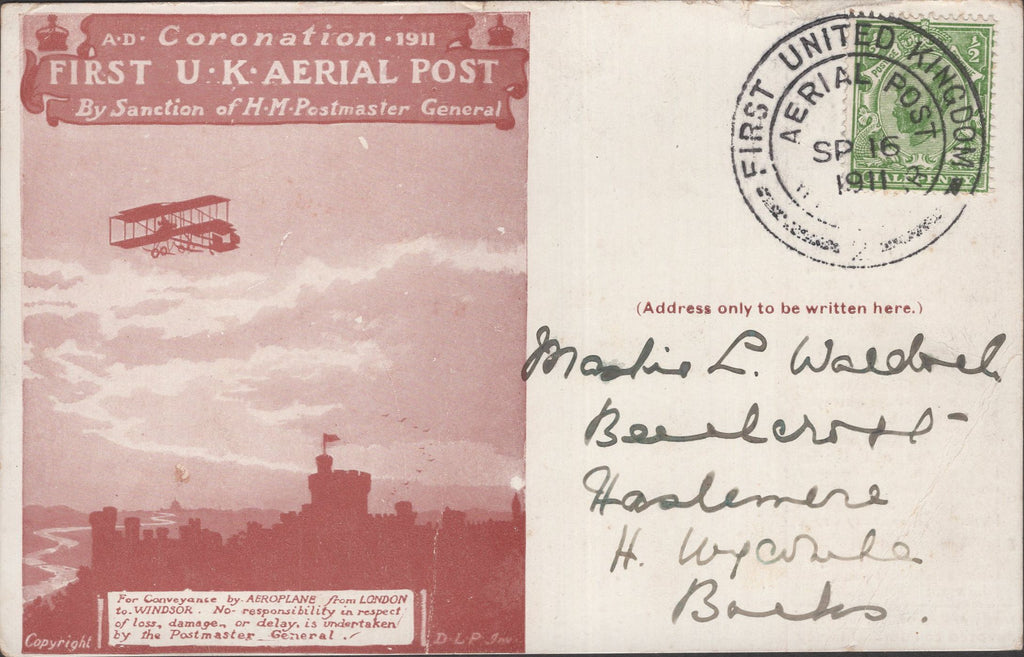 A·D· Coronation · 1911
FIRST U·K·AERIAL POST
By Sanction of H·M·Postmaster General
For Conveyance by AEROPLANE from LONDON
to WINDSOR. No responsibility in respect
of loss, damage, or delay, is undertaken
by the Postmaster General.
Copyright
D·L·P· Inv.
FIRST UNITED KINGDOM
AERIAL POST
SP 16
1911
2
½
(Address only to be written here.)
L.
Haslemere
H. Wycombe
Bucks.